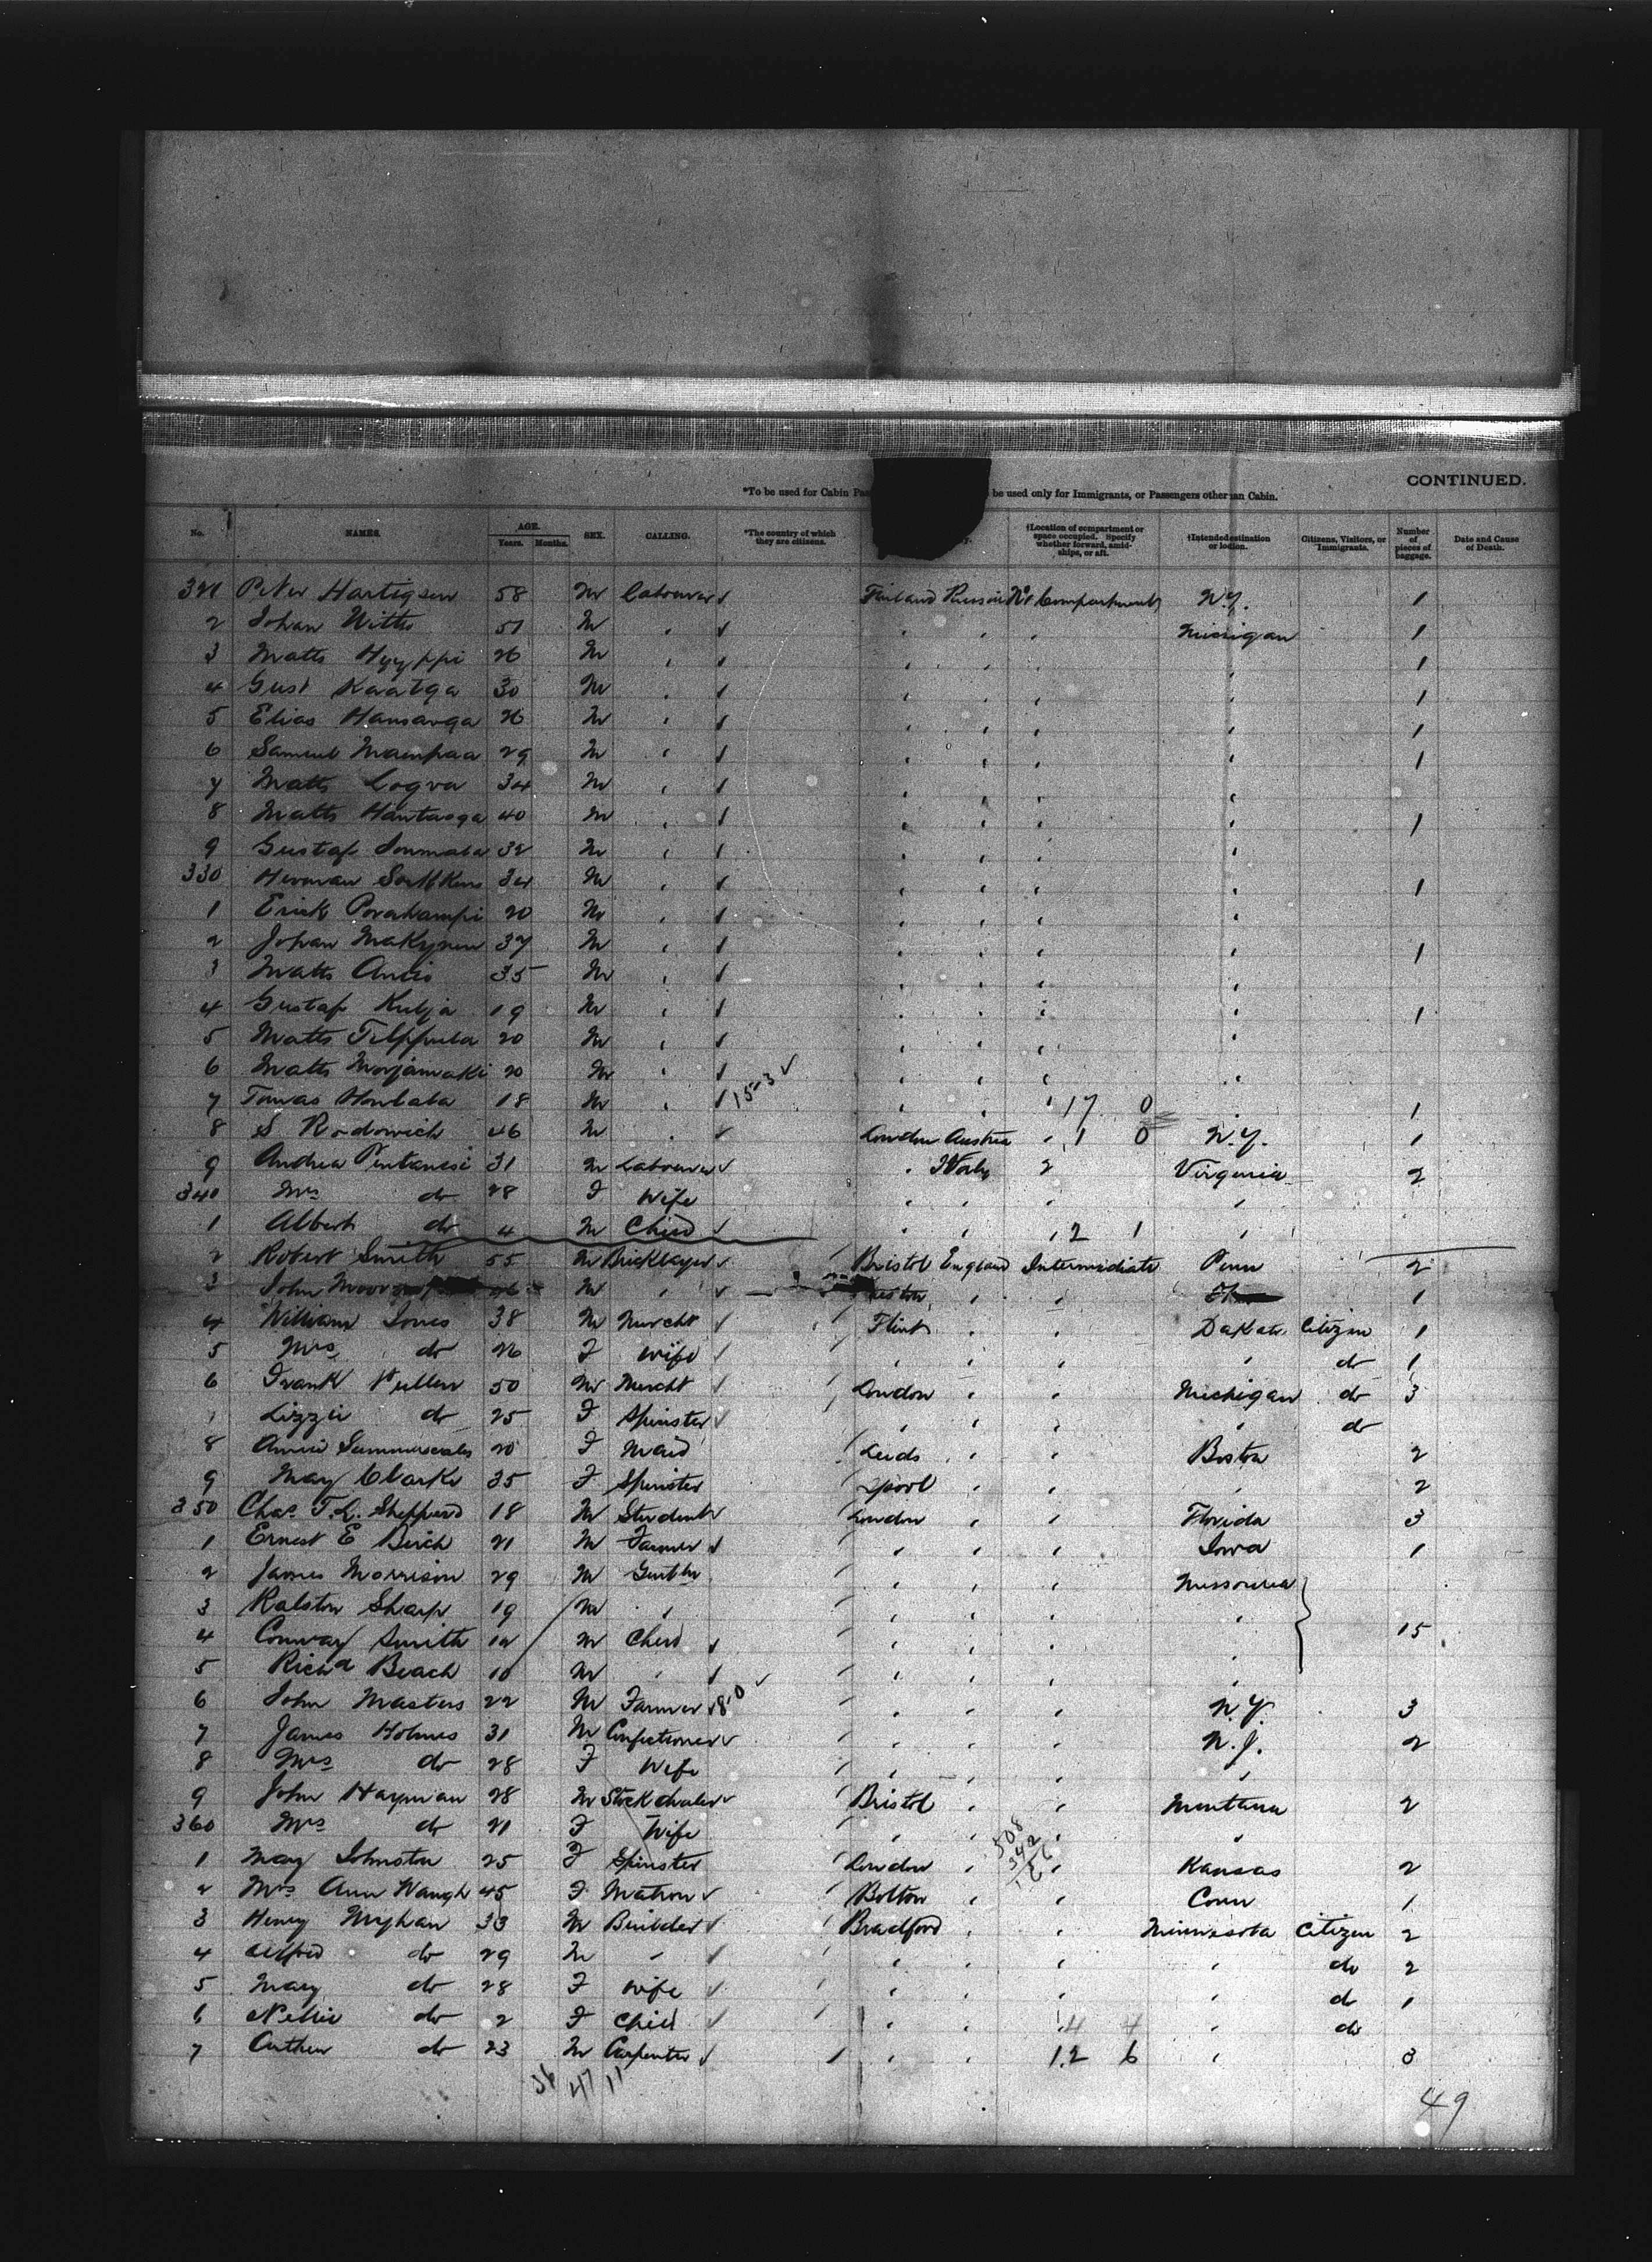 CONTINUED.
*To be used for Cabin Pas be used only for Immigrants, or Passengers other an Cabin.
No. NAMES. AGE. Years. Months. SEX. CALLING. *The country of which they are citizens. †Location of compartment or space occupied. Specify whether forward, amidships, or aft. †Intended estination or lo tion. Citizens, Visitors, or Immigrants. Number of pieces of baggage. Date and Cause of Death.
321 Peter Hartigsen 58 M Labourer Finland Russia No 1 Compartment N.Y. 1
2 Johan Witts 51 M Michigan 1
3 Matts Hyyppi 26 M 1
4 Gust Kaatga 30 M 1
5 Elias Hansavga 26 M 1
6 Samuel 29 M 1
7 Matts Logva 34 M
8 Matts Hantaoga 40 M 1
9 Gustaf 32 M
330 Herman 34 M 1
1 Erick Porahampi 20 M
2 Johan Makynen 37 M 1
3 Matts Antis 35 M
4 Gustaf Kulja 19 M 1
5 Matts Filppula 20 M
6 Matts Morjamaki 20 M
7 Tomas Honlala 18 M 15-3 17 0 1
8 S Radowich 46 M London Austria 1 0 N.Y. 1
9 Andrea Pentanesi 31 M Labourer Italy 2 Virginia 2
340 Mrs do 28 F Wife
1 Albert do 4 M Child 2 1
2 Robert Smith 55 M Bricklayer Bristol England Intermediate Penn 2
3 John Moor 26 M 1
4 William Jones 38 M Mercht Flint Dakota Citizen 1
5 Mrs do 26 F Wife do 1
6 Frank Pullen 50 M Mercht London Michigan do 3
7 Lizzie do 25 F Spinster do
8 Annie Summerscales 20 F Maid Leeds Boston 2
9 May Clarke 35 F Spinster Lpool 2
350 Chas T.L. Shepperd 18 M Student London Florida 3
1 Ernest E Birch 21 M Farmer Iowa 1
2 James Morrison 29 M Gentln Missouria
3 Ralston Sharp 19 M
4 Conway Smith 12 M Child 15
5 Richd Beach 10 M
6 John Masters 22 M Farmer 8-0 N.Y. 3
7 James Holmes 31 M Confectioner N.J. 2
8 Mrs do 28 F Wife
9 John Hayman 28 M Stock dealer Bristol Montana 2
360 Mrs do 21 F Wife
508
342
166
1 May Johnston 25 F Spinster London Kansas 2
2 Mrs Ann Waugh 45 F Matron Bolton Conn 1
3 Henry Myhan 33 M Builder Bradford Minnesota Citizen 2
4 Alfred do 29 M do 2
5 Mary do 28 F Wife do 1
6 Nellie do 2 F Child 14 4 do
7 Arthur do 23 M Carpenter 12 6 3
36 47 11
49